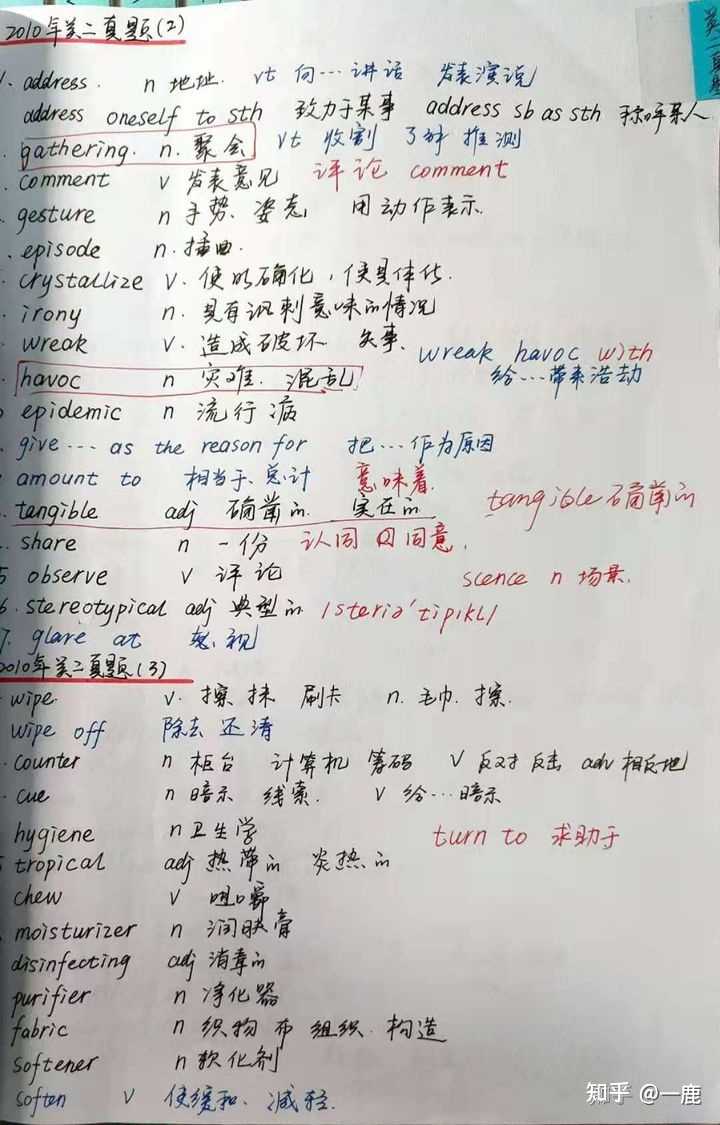 2010年英二真题(2)
英一真题
1. address. n 地址. vt 向…讲话 发表演说
address oneself to sth 致力于某事 address sb as sth 称呼某人
. gathering. n. 聚会 vt 收割 了解 推测
. comment v 发表意见 评论 comment
. gesture n 手势. 姿态 用动作表示.
. episode n. 插曲.
. crystallize v. 使明确化, 使具体化.
. irony n. 具有讽刺意味的情况
. wreak v. 造成破坏 失事.
wreak havoc with
. havoc n 灾难. 混乱 给…带来浩劫
epidemic n 流行病
. give … as the reason for 把…作为原因
amount to 相当于、总计 意味着.
. tangible adj 确凿的. 实在的 tangible 确凿的
. share n 一份 认同 同意.
5 observe v 评论 scence n 场景.
6. stereotypical adj 典型的 /steriə'tipikl/
7. glare at 怒视
2010年英二真题(3)
. wipe v. 擦 抹 刷卡 n. 毛巾. 擦.
wipe off 除去 还清
. counter n 柜台 计算机 筹码 v 反对 反击 adv 相反地
. cue n 暗示 线索. v 给…暗示
hygiene n 卫生学 turn to 求助于
5 tropical adj 热带的 炎热的
chew v 咀嚼
. moisturizer n 润肤膏
disinfecting adj 消毒的
purifier n 净化器
fabric n 织物 布 组织. 构造
softener n 软化剂
soften v 使缓和. 减轻.
知乎 @一鹿